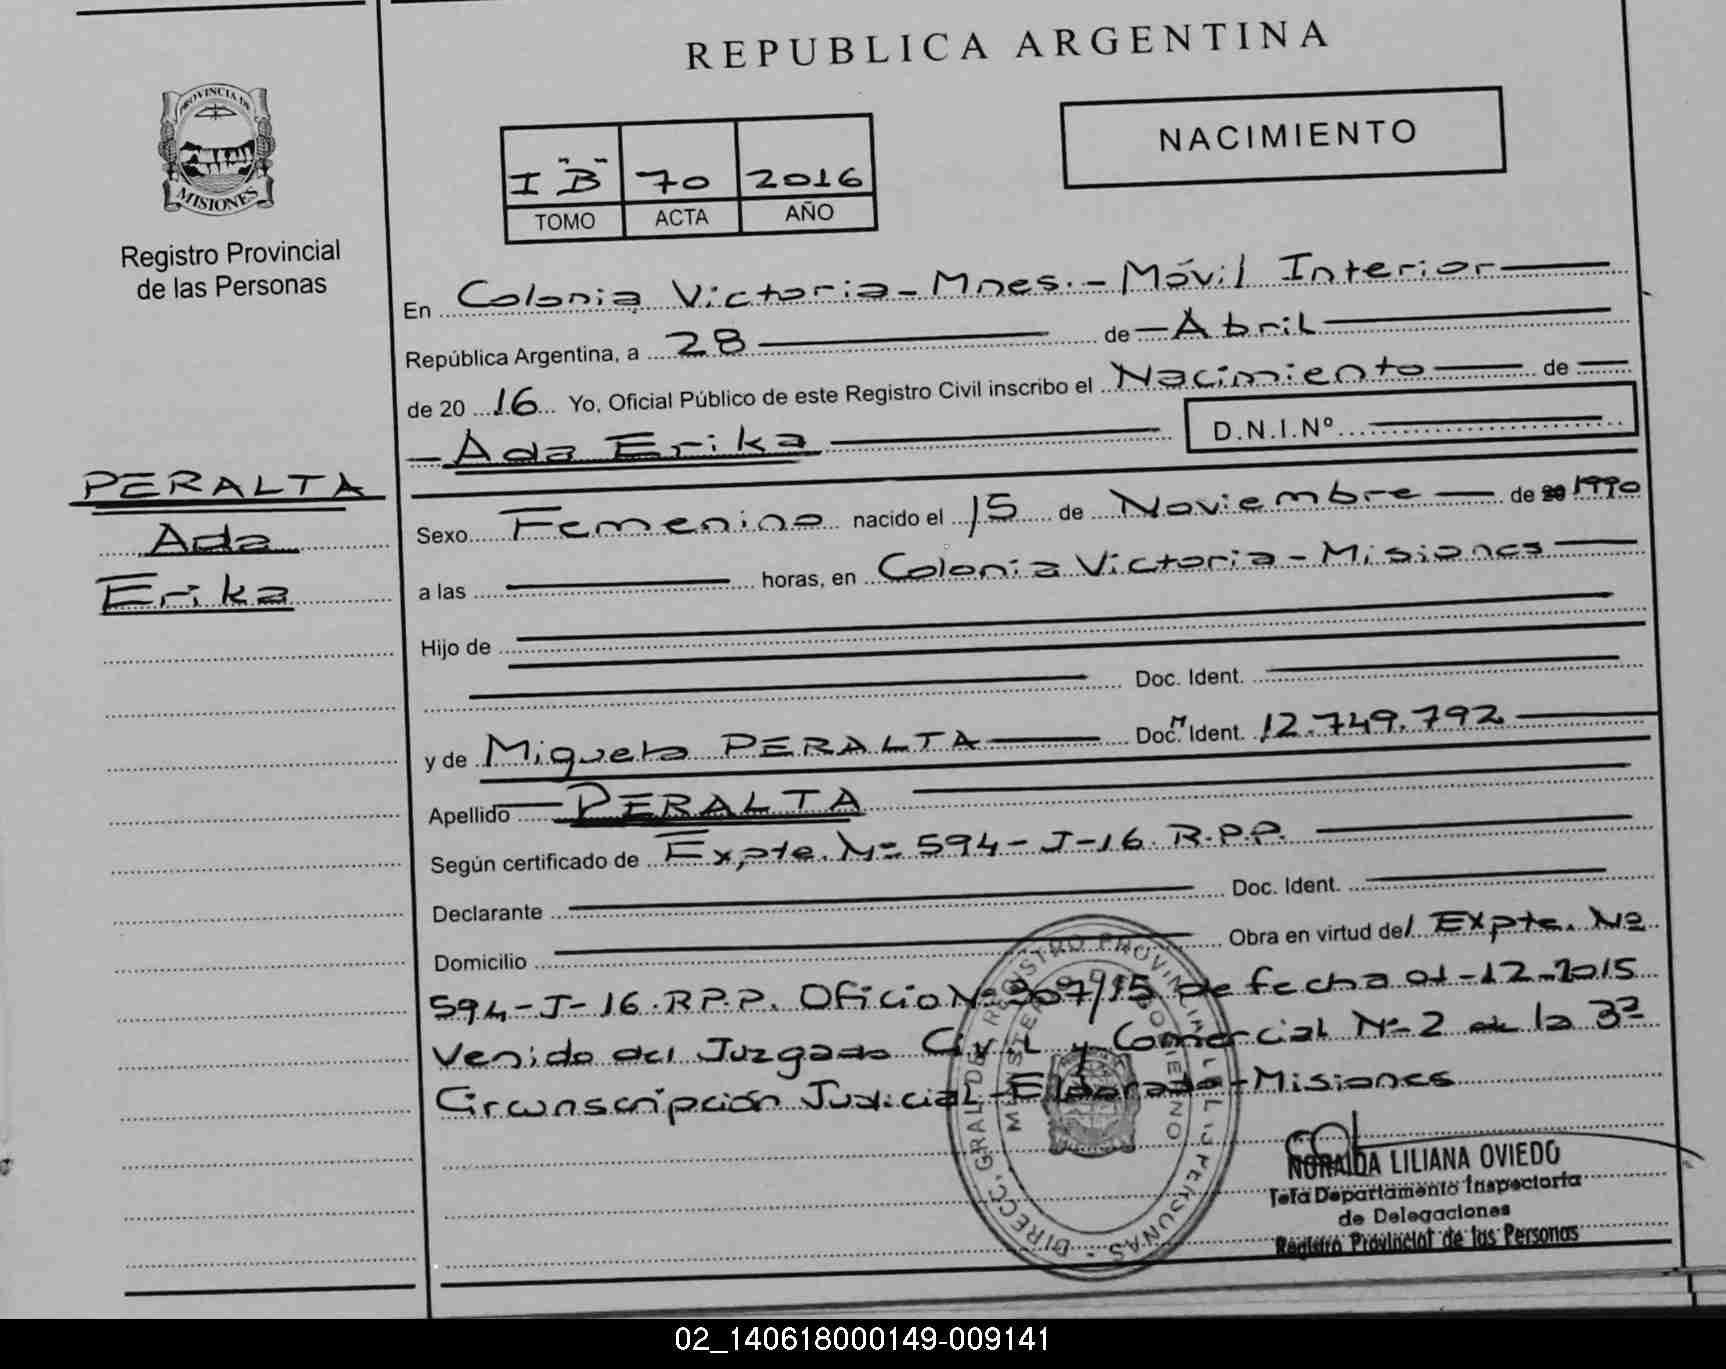 REPUBLICA ARGENTINA
PROVINCIA DE
MISIONES
Registro Provincial
de las Personas
NACIMIENTO
I "B" 70 2016
TOMO ACTA AÑO
En Colonia Victoria - Mnes. - Móvil Interior
República Argentina, a 28 de Abril
de 20 16 Yo, Oficial Público de este Registro Civil inscribo el Nacimiento de
Ada Erika D.N.I.Nº
PERALTA
Ada
Erika
Sexo Femenino nacido el 15 de Noviembre de 20 1990
a las horas, en Colonia Victoria - Misiones
Hijo de
Doc. Ident.
y de Miguela PERALTA Doc. M Ident. 12.749.792
Apellido PERALTA
Según certificado de Expte. Nº 594-J-16. R.P.P.
Declarante Doc. Ident.
Domicilio Obra en virtud del Expte. Nº
594-J-16.R.P.P. Oficio Nº 907/15 de fecha 01-12-2015
Venido del Juzgado Civil y Comercial Nº 2 de la 3ª
Circunscripción Judicial - Eldorado - Misiones
DIRECC. GRAL DE REGISTRO PROVINCIAL DE LAS PERSONAS
MINISTERIO DE GOBIERNO
NORAIDA LILIANA OVIEDO
Jefa Departamento Inspectoria
de Delegaciones
Registro Provincial de las Personas
02_140618000149-009141